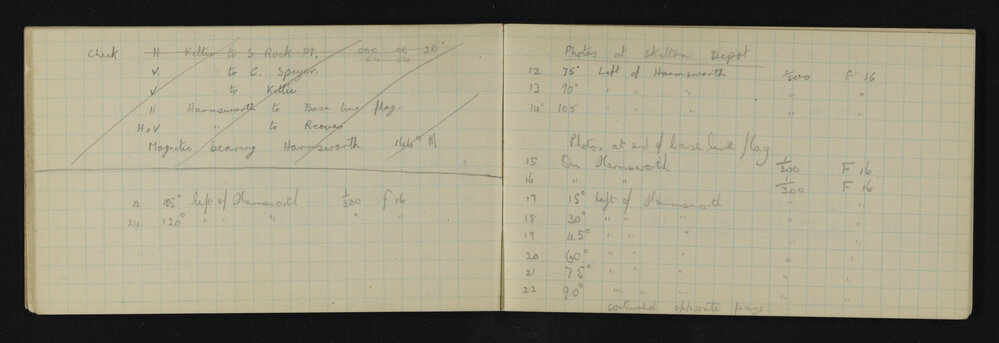 Check H Kettie to S. Rock Pt. 000 00 20"
V. to C. Speyer.
V to Kettie
H Harmsworth to Base line flag.
H&V " to Reeves
Magnetic bearing Harmsworth 166° M.
105° left of Harmsworth 1/200 f 16
24. 120° " " " " "
Photos at Skelton Depot
12 75° Left of Harmsworth 1/200 F 16
13 90° " " " " "
14 105 " " "
Photos at end of base line flag.
15. On Harmsworth 1/200 F 16
16 " " 1/300 F 16
17 15° left of Harmsworth " "
18 30° " " " " "
19 45° " " " " "
20 60° " " " "
21 75° " " " " "
22 90° " " " " "
continued opposite page